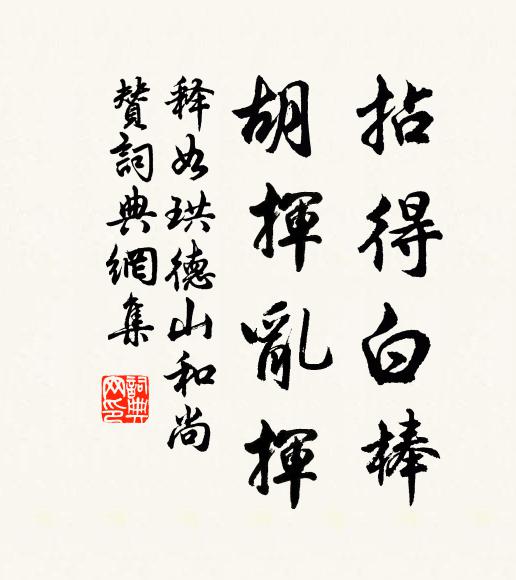 拈得白棒
胡揮亂揮
释如珙德山和尚
贊詞典網集
詞典
网印